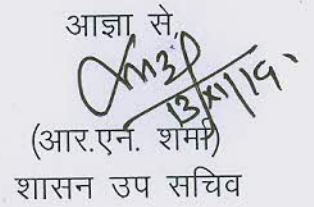 आज्ञा से,
13/XI/19
(आर.एन. शर्मा)
शासन उप सचिव